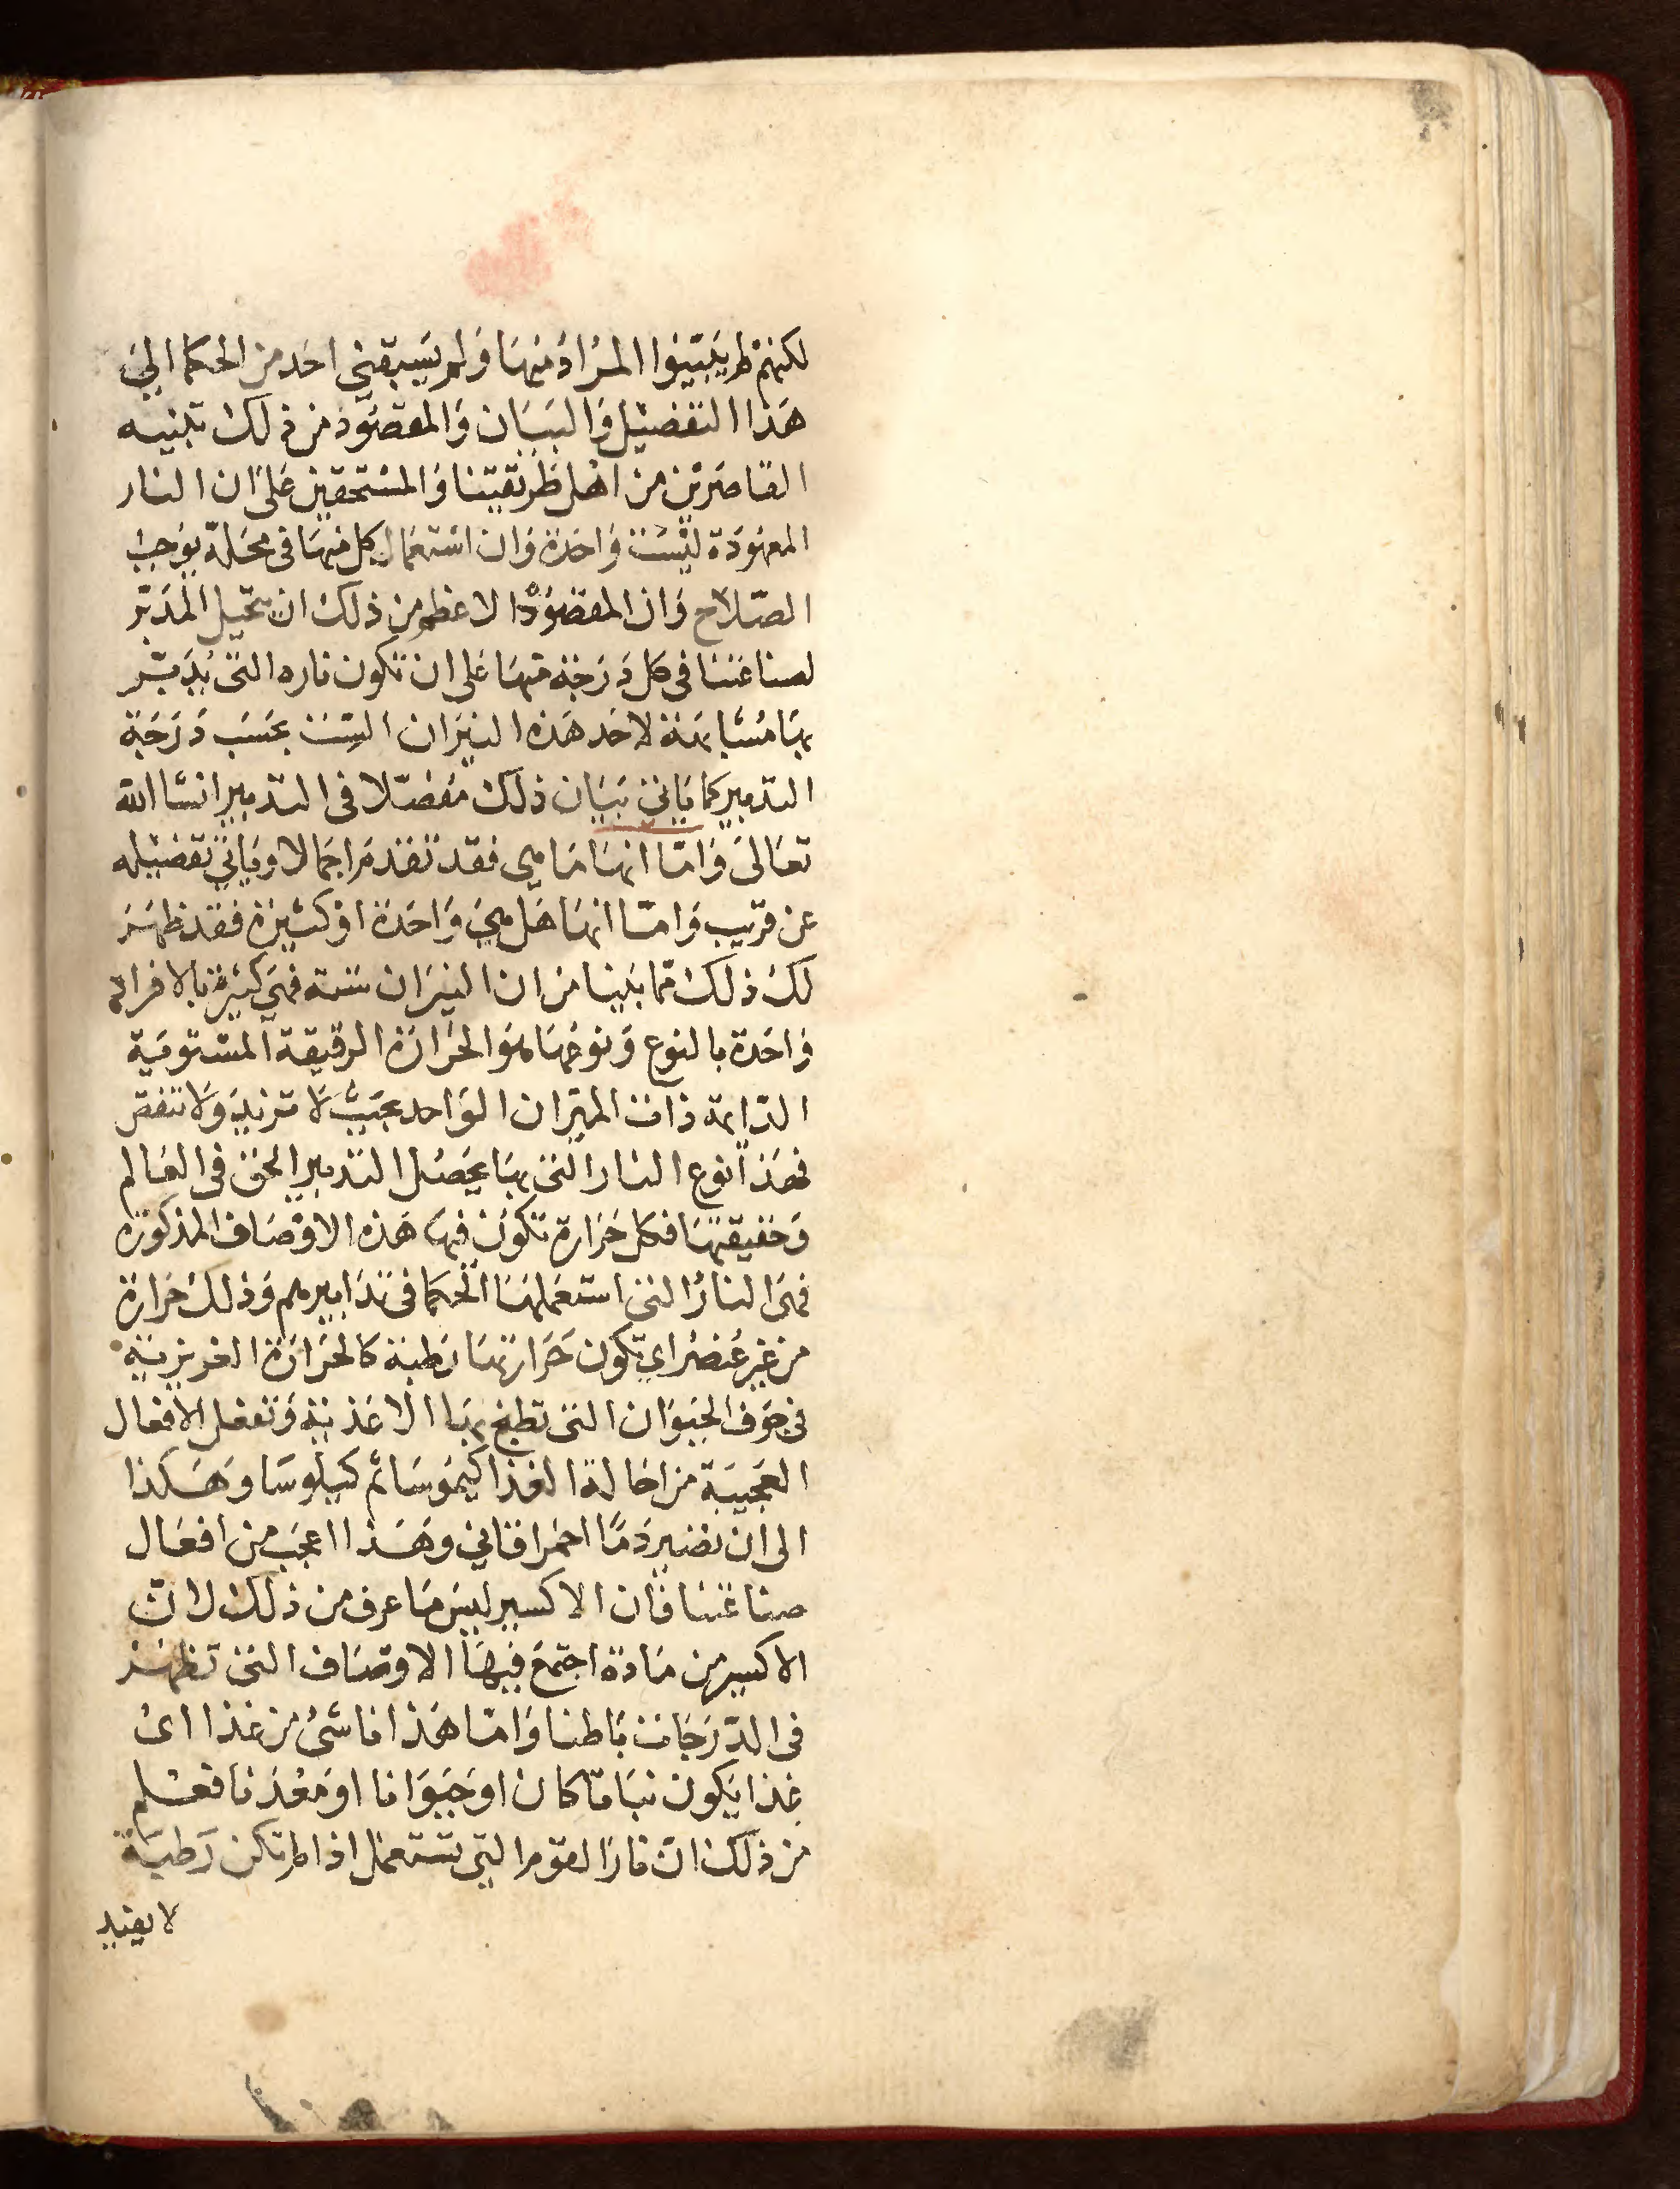 لكنهم لم يبينوا المراد منها ولم يسبقني احد من الحكما الي
هذا التفضيل والبيان والمقصود من ذلك تنبيه
القاصرين من اهل طريقتنا والمستحقين على ان النار
المعهودة ليست واحدة وان استعمال كل منها في محله يوجب
الصلاح وان المقصود الاعظم من ذلك ان يتحيل المدبر
لصناعتنا في كل درجة منها على ان تكون ناره التى يدبر
بها مشابهة لاحد هذه النيران الست بحسب درجة
التدبير كما ياتي بيان ذلك مفصلا في التدبير انشا الله
تعالى واما انها ما هي فقد تقدم اجمالا وياتي تفضيله
عن قريب واما انها هل هي واحدة او كثيرة فقد ظهر
لك ذلك مما بينا من ان النيران ستة فهي كثيرة بالافراد
واحدة بالنوع ونوعها هو الحرارة الرقيقة المستوية
الدايمة ذات الميزان الواحد بحيث لا تزيد ولا تنقص
فهذا نوع النار التى بها يحصل التدبير الحق في العالم
وحقيقتها فكل حرارة تكون فيها هذه الاوصاف المذكورة
فهى النار التى استعملها الحكما في تدابيرهم وذلك حرارة
من غير عنصر اي تكون حرارتها رطبة كالحرارة الغريزية
في جوف الحيوان التى تطبخ بها الاغذية وتفعل الافعال
العجيبة من احالة الغذا كيموسا ثم كيلوسا وهكذا
الى ان تصير دما احمرا قاني وهذا اعجب من افعال
صناعتنا فان الاكسير ليس ما عرف من ذلك لان
الاكسير من مادة اجتمع فيها الاوصاف التى تظهر
في الدرجات باطنا واما هذا فاشئ من غذا اى
غذا يكون نباتا كان او حيوانا او معدنا فعلم
من ذلك ان نار القوم التي تستعمل اذا لم تكن رطبة
لا يفيد